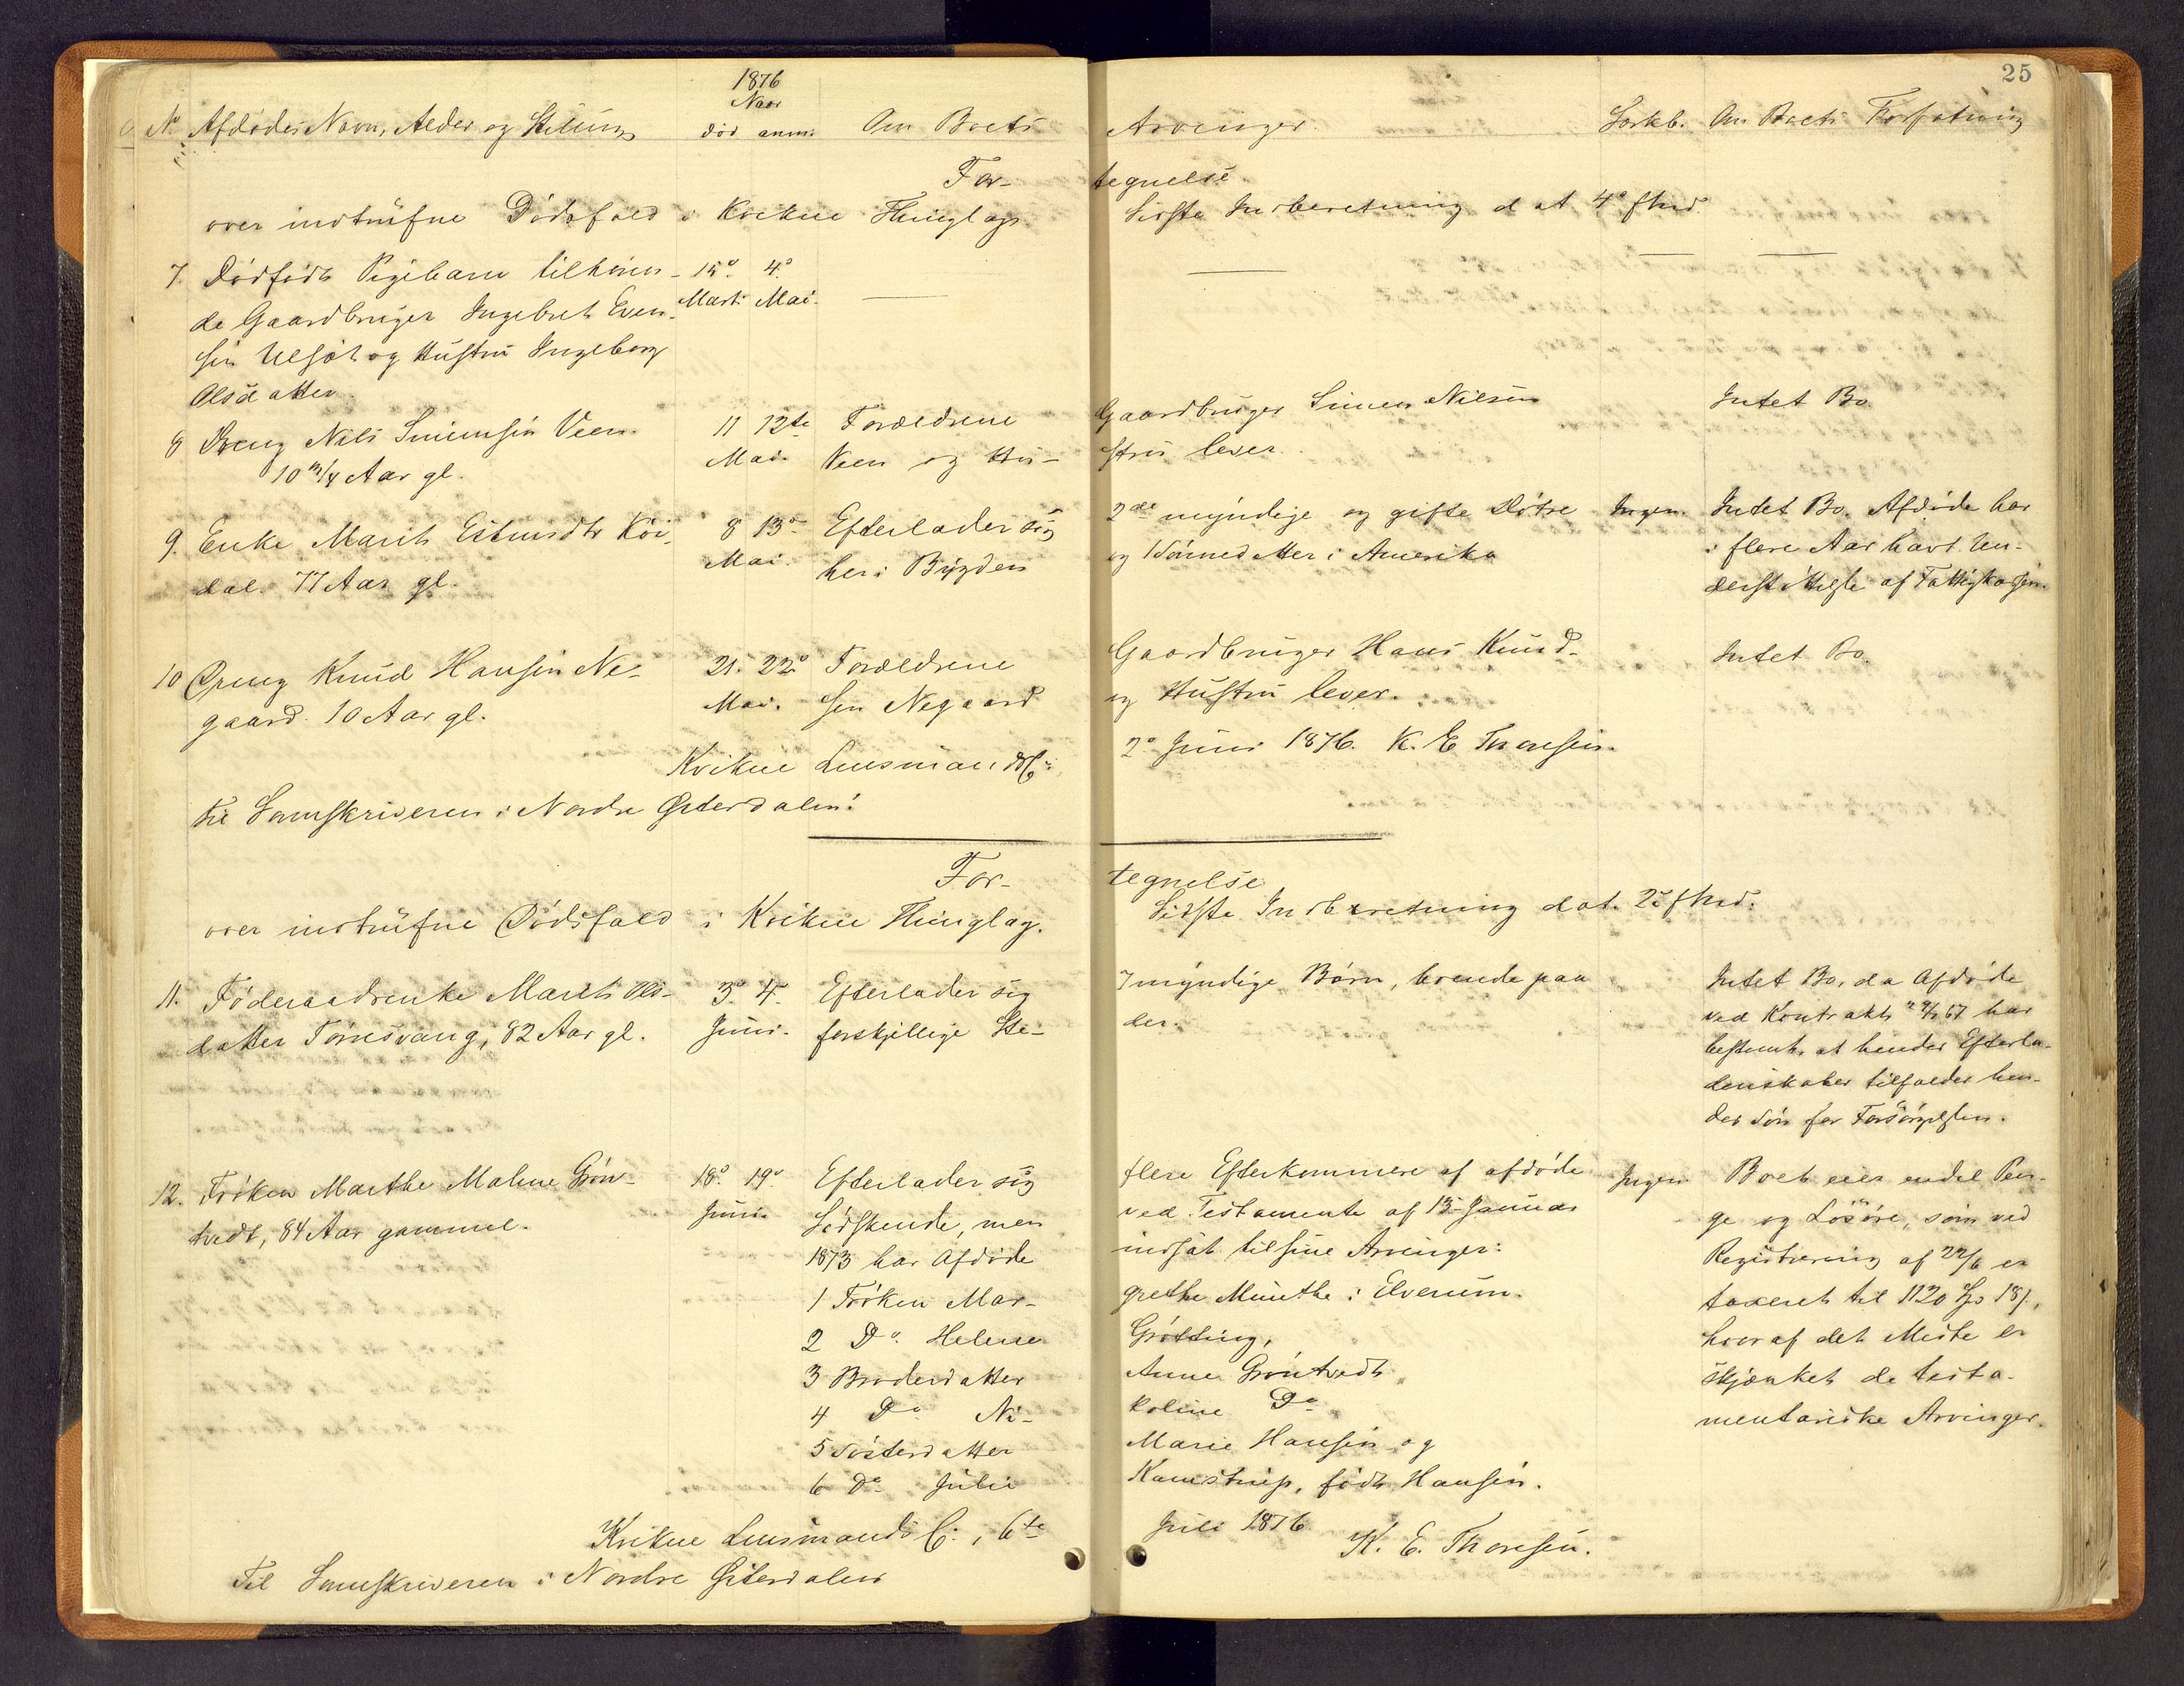 1876
25
Naar
No Afdødes Navn, Alder og Stilling død anm: Om Boets Arvinger. Sorkb. Om Boets Forfatning
Fortegnelse
over indtrufne Dødsfald i Kvikne Thinglag. Sidste Indberetning dat 4de f Md.
7. Dødfødt Pigebarn tilhøren- 15de 4de
de Gaardbruger Ingebret Even- Marts Mai.
sen Ulsæt og Hustru Ingeborg
Olsdatter.
8 Dreng Nils Simensen Veen 11 12te Forældrene Gaardbruger Simen Nilsen Intet Bo.
10 3/4 Aar gl. Mai. Veen og Hustru lever.
9. Enke Marit Estensdtr Kői- 8 13de Efterlader sig 2de myndige og gifte Døtre Ingen. Intet Bo. Afdøde har
dal. 77 Aar gl. Mai. her i Bygden og 1 Sønnedatter i Amerika i flere Aar havt Un-
derstøttelse af Fattigkassen.
10 Dreng Knud Hansen Ne- 21. 22de Forældrene Gaardbruger Hans Knud- Intet Bo.
gaard. 10 Aar gl. Mai. sen Negaard og Hustru lever.
Kvikne Lensmandsb: 2de Juni 1876. K. E. Thoresen.
Til Sorenskriveren i Nordre Østerdalen!
Fortegnelse
over indtrufne Dødsfald i Kvikne Thinglag. Sidste Indberetning dat. 2de f Md.
11. Føderaadsenke Marit Ols- 3de 4de Efterlader sig 7 myndige Børn, boende paa Intet Bo, da Afdøde
datter Tørresvang, 82 Aar gl. Juni. forskjellige Steder. ved Kontrakt 67 har
bestemt, at hendes Efterla-
denskaber tilfalder hen-
des Søn for Forsørgelsen.
12. Frøken Marthe Malene Grøn- 18de 19de Efterlader sig flere Efterkommere af afdøde Ingen Boet eier endel Pen-
tvedt, 84 Aar gammel. Juni. Sødskende, men ved Testamente af 13 Januar ge og Løsøre, som ved
1873 har Afdøde indsat til sine Arvinger: Registrering af 22/6 er
1 Frøken Margrethe Munthe i Elverum. taxeret til 1120 Spd 18 s,
2 Do. Helene Grøtting, hvoraf det Meste er
3 Broderdatter Anne Grøntvedt skjænket de testa-
4 Do. Nikoline Do mentariske Arvinger.
5 Søsterdatter Marie Hansen og
6 Do. Julie Kamstrup, født Hansen.
Kvikne Lensmandsb:, 6te Juli 1876. K. E. Thoresen.
Til Sorenskriveren i Nordre Østerdalen